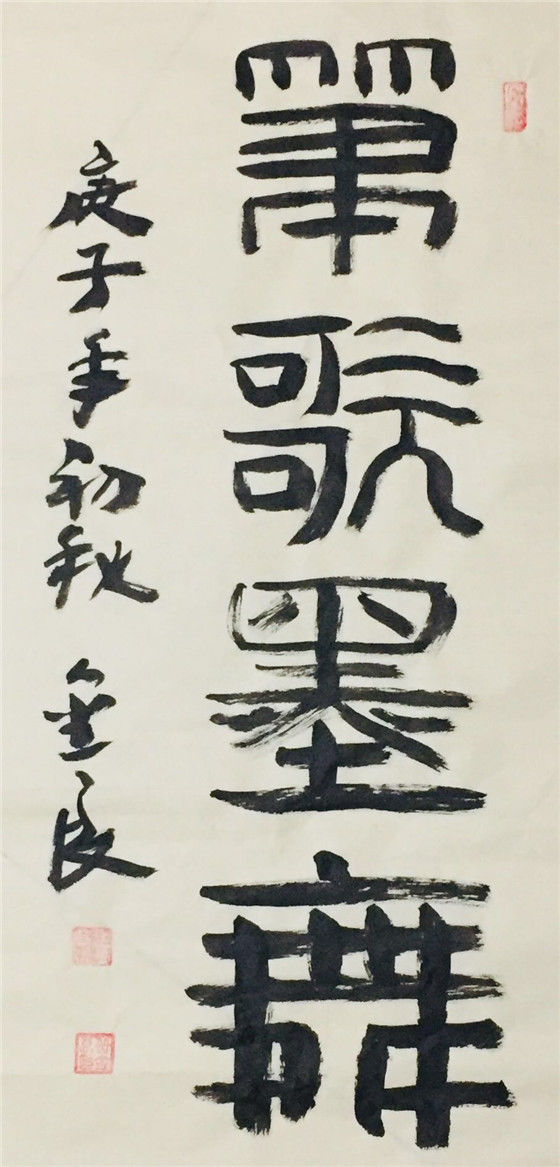 筆歌墨舞
庚子年初秋 金良